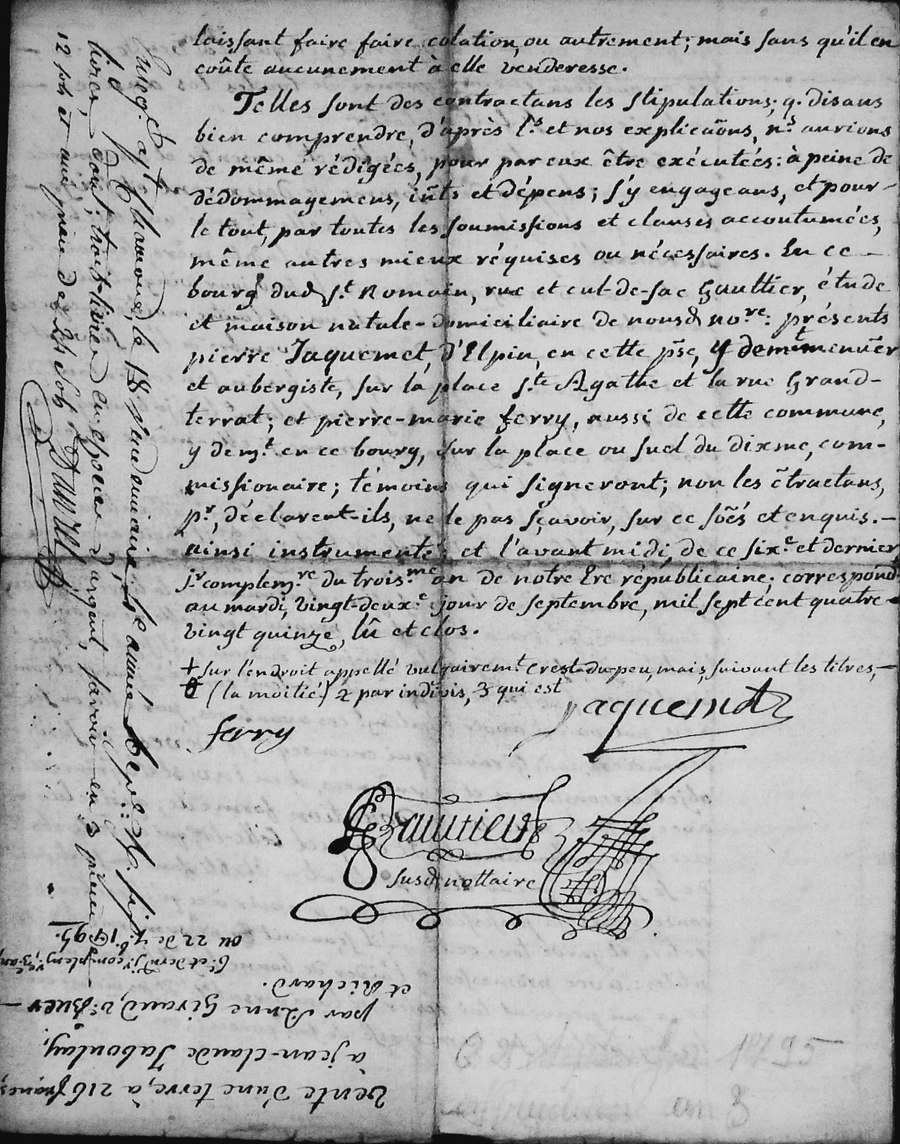 laissant faire faire colation, ou autrement; mais sans qu'il en
coûte aucunement à elle venderesse.
Telles sont des contractans les stipulations; q. disans
bien comprendre, d'après l.s et nos explicaõns, n.s aurions
de même rédigées, pour par eux être exécutées: à peine de
dédommagemens, ints et dépens; s'y engageans, et pour
le tout, par toutes les soumissions et clauses accoutumées,
même autres mieux réquises ou nécessaires. En ce
bourg dud. St. Romain, rue et cul-de-sac Gaultier, étude
et maison natale-domiciliaire de nousd. no.re: présents
pierre Jaquemet, d'Elpin, en cette pse, y demt menuer
et aubergiste, sur la place Ste Agathe et la rue Grand-
terrat; et pierre-marie ferry, aussi de cette commune,
y dem.t en ce bourg, sur la place ou suel du dixme, com-
missionaire; témoins qui signeront; non les c̃tractans,
pr, déclarent-ils, ne le pas sçavoir, sur ce soẽs et enquis.-
ainsi instrumenté; et l'avant midi, de ce six.e et dernier
j.r complem.re du trois.me an de notre Ere républicaine; correspond.
au mardi, vingt-deux.e jour de septembre, mil sept cent quatre-
vingt quinze, lû et clos.
+ sur l'endroit appellé vulgairemt crest-du-peu, mais, suivant les titres,-
θ (la moitié) 2 par indivis, 3 qui est
Jaquemet
ferry
Gaultier
susd. nottaire
à St Chamond le 18 vendemiaire, l'année
livres, dont trois livres en especes d'argent, savoir en 3 pieces
12 sols et une piece de 24 sols
Vente d'une terre, à 216 francs,
à jean-claude Jaboulay,
par Anne Giraud, v.e Buer
et Richard.
6.e et dern. j.r complem.re 3 an,
ou 22 de 7.b 1795.
1795
an 3